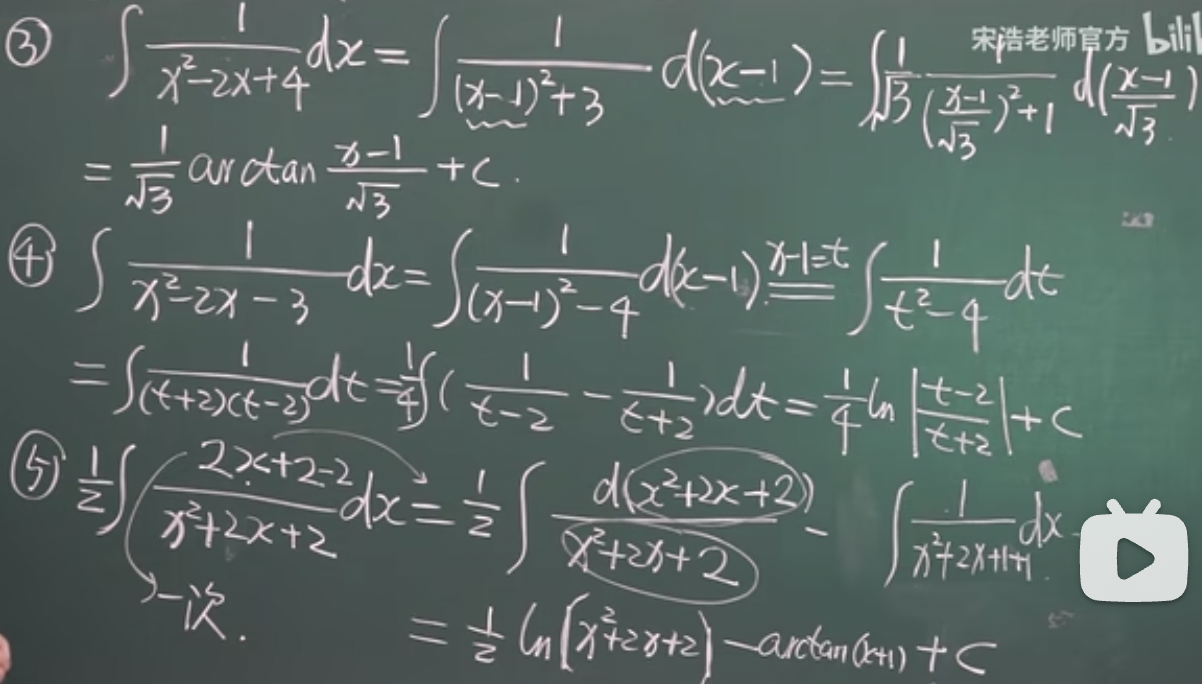 ③ ∫ 1/(x²-2x+4) dx = ∫ 1/((x-1)²+3) d(x-1) = ∫ 1/√3 1/(((x-1)/√3)²+1) d((x-1)/√3)
宋浩老师官方 bili
= 1/√3 arctan (x-1)/√3 + C.
④ ∫ 1/(x²-2x-3) dx = ∫ 1/((x-1)²-4) d(x-1) x-1=t ∫ 1/(t²-4) dt
= ∫ 1/((t+2)(t-2)) dt = 1/4 ∫ (1/(t-2) - 1/(t+2)) dt = 1/4 ln |(t-2)/(t+2)| + C
⑤ 1/2 ∫ (2x+2-2)/(x²+2x+2) dx = 1/2 ∫ d(x²+2x+2)/(x²+2x+2) - ∫ 1/(x²+2x+1+1) dx
一次.
= 1/2 ln[x²+2x+2] - arctan(x+1) + C